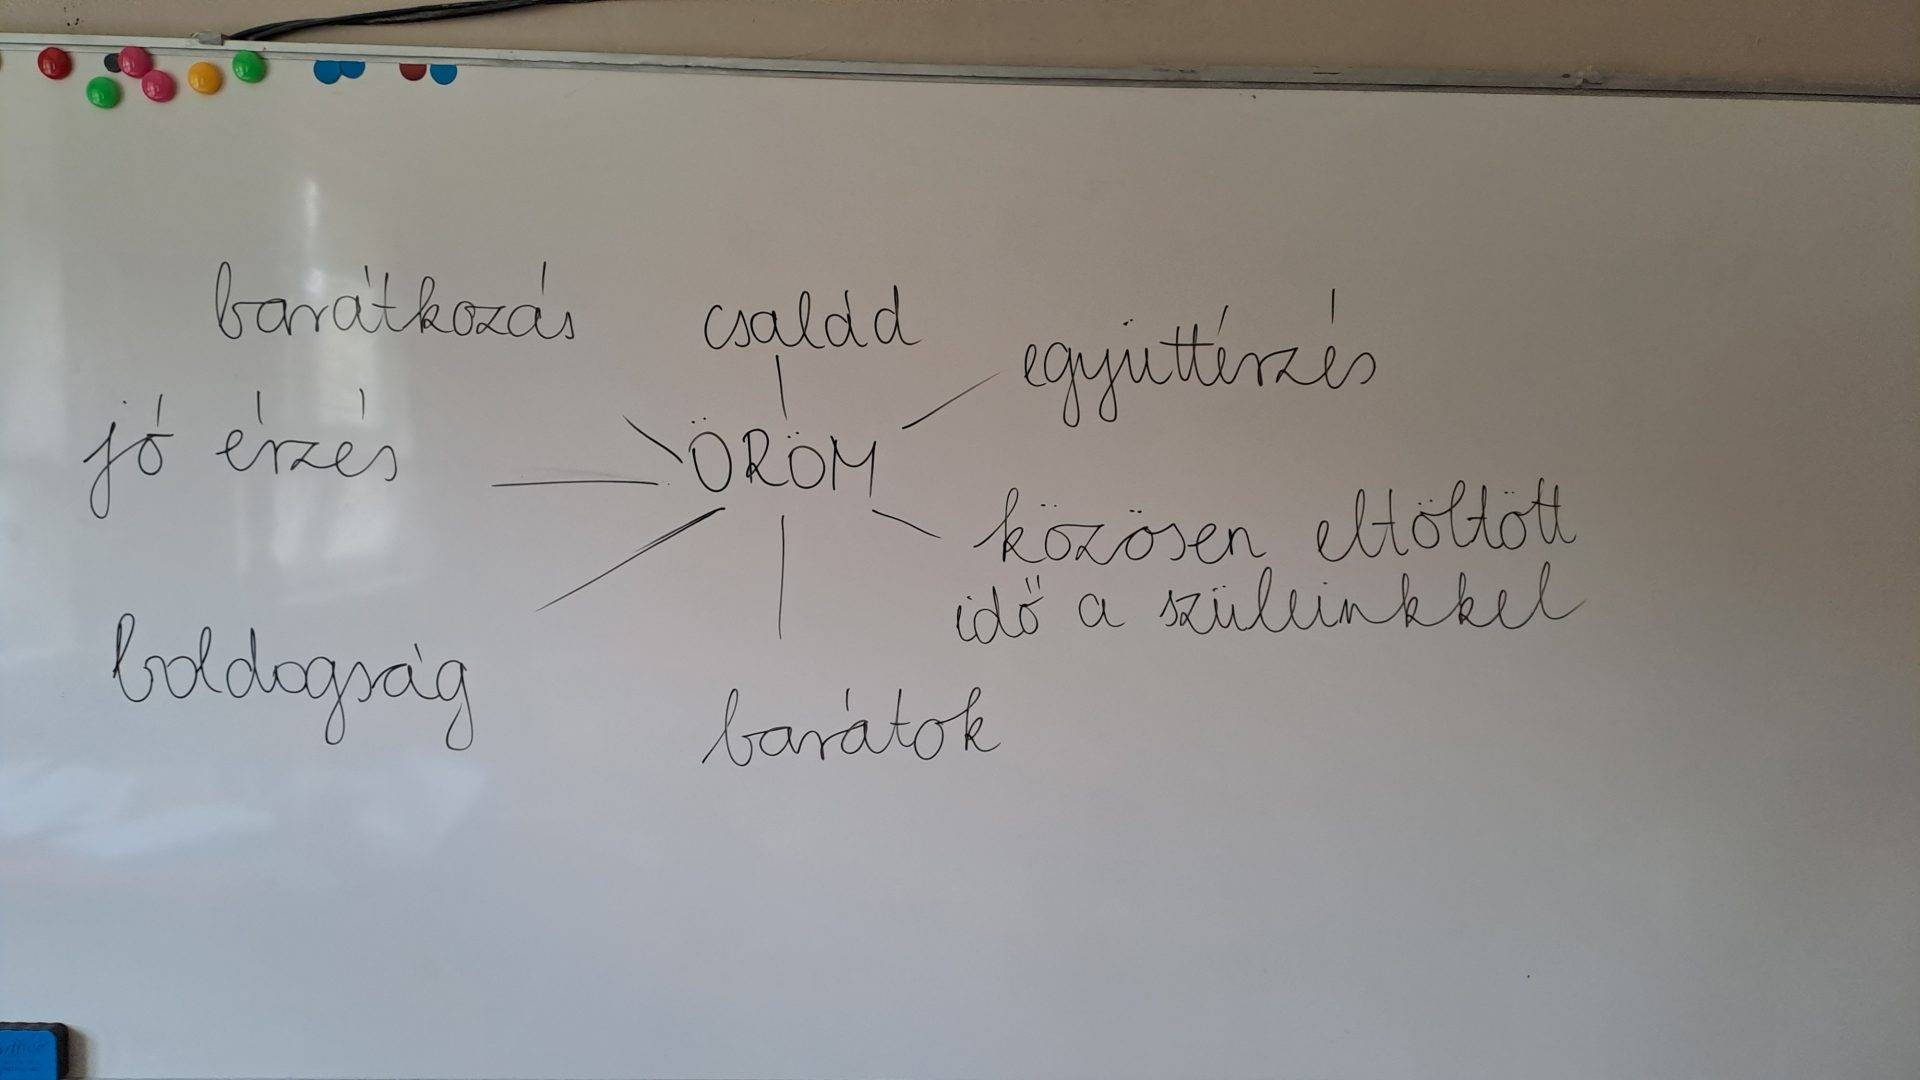 barátkozás
család
együttérzés
jó érzés
ÖRÖM
közösen eltöltött
idő a szüleinkkel
boldogság
barátok